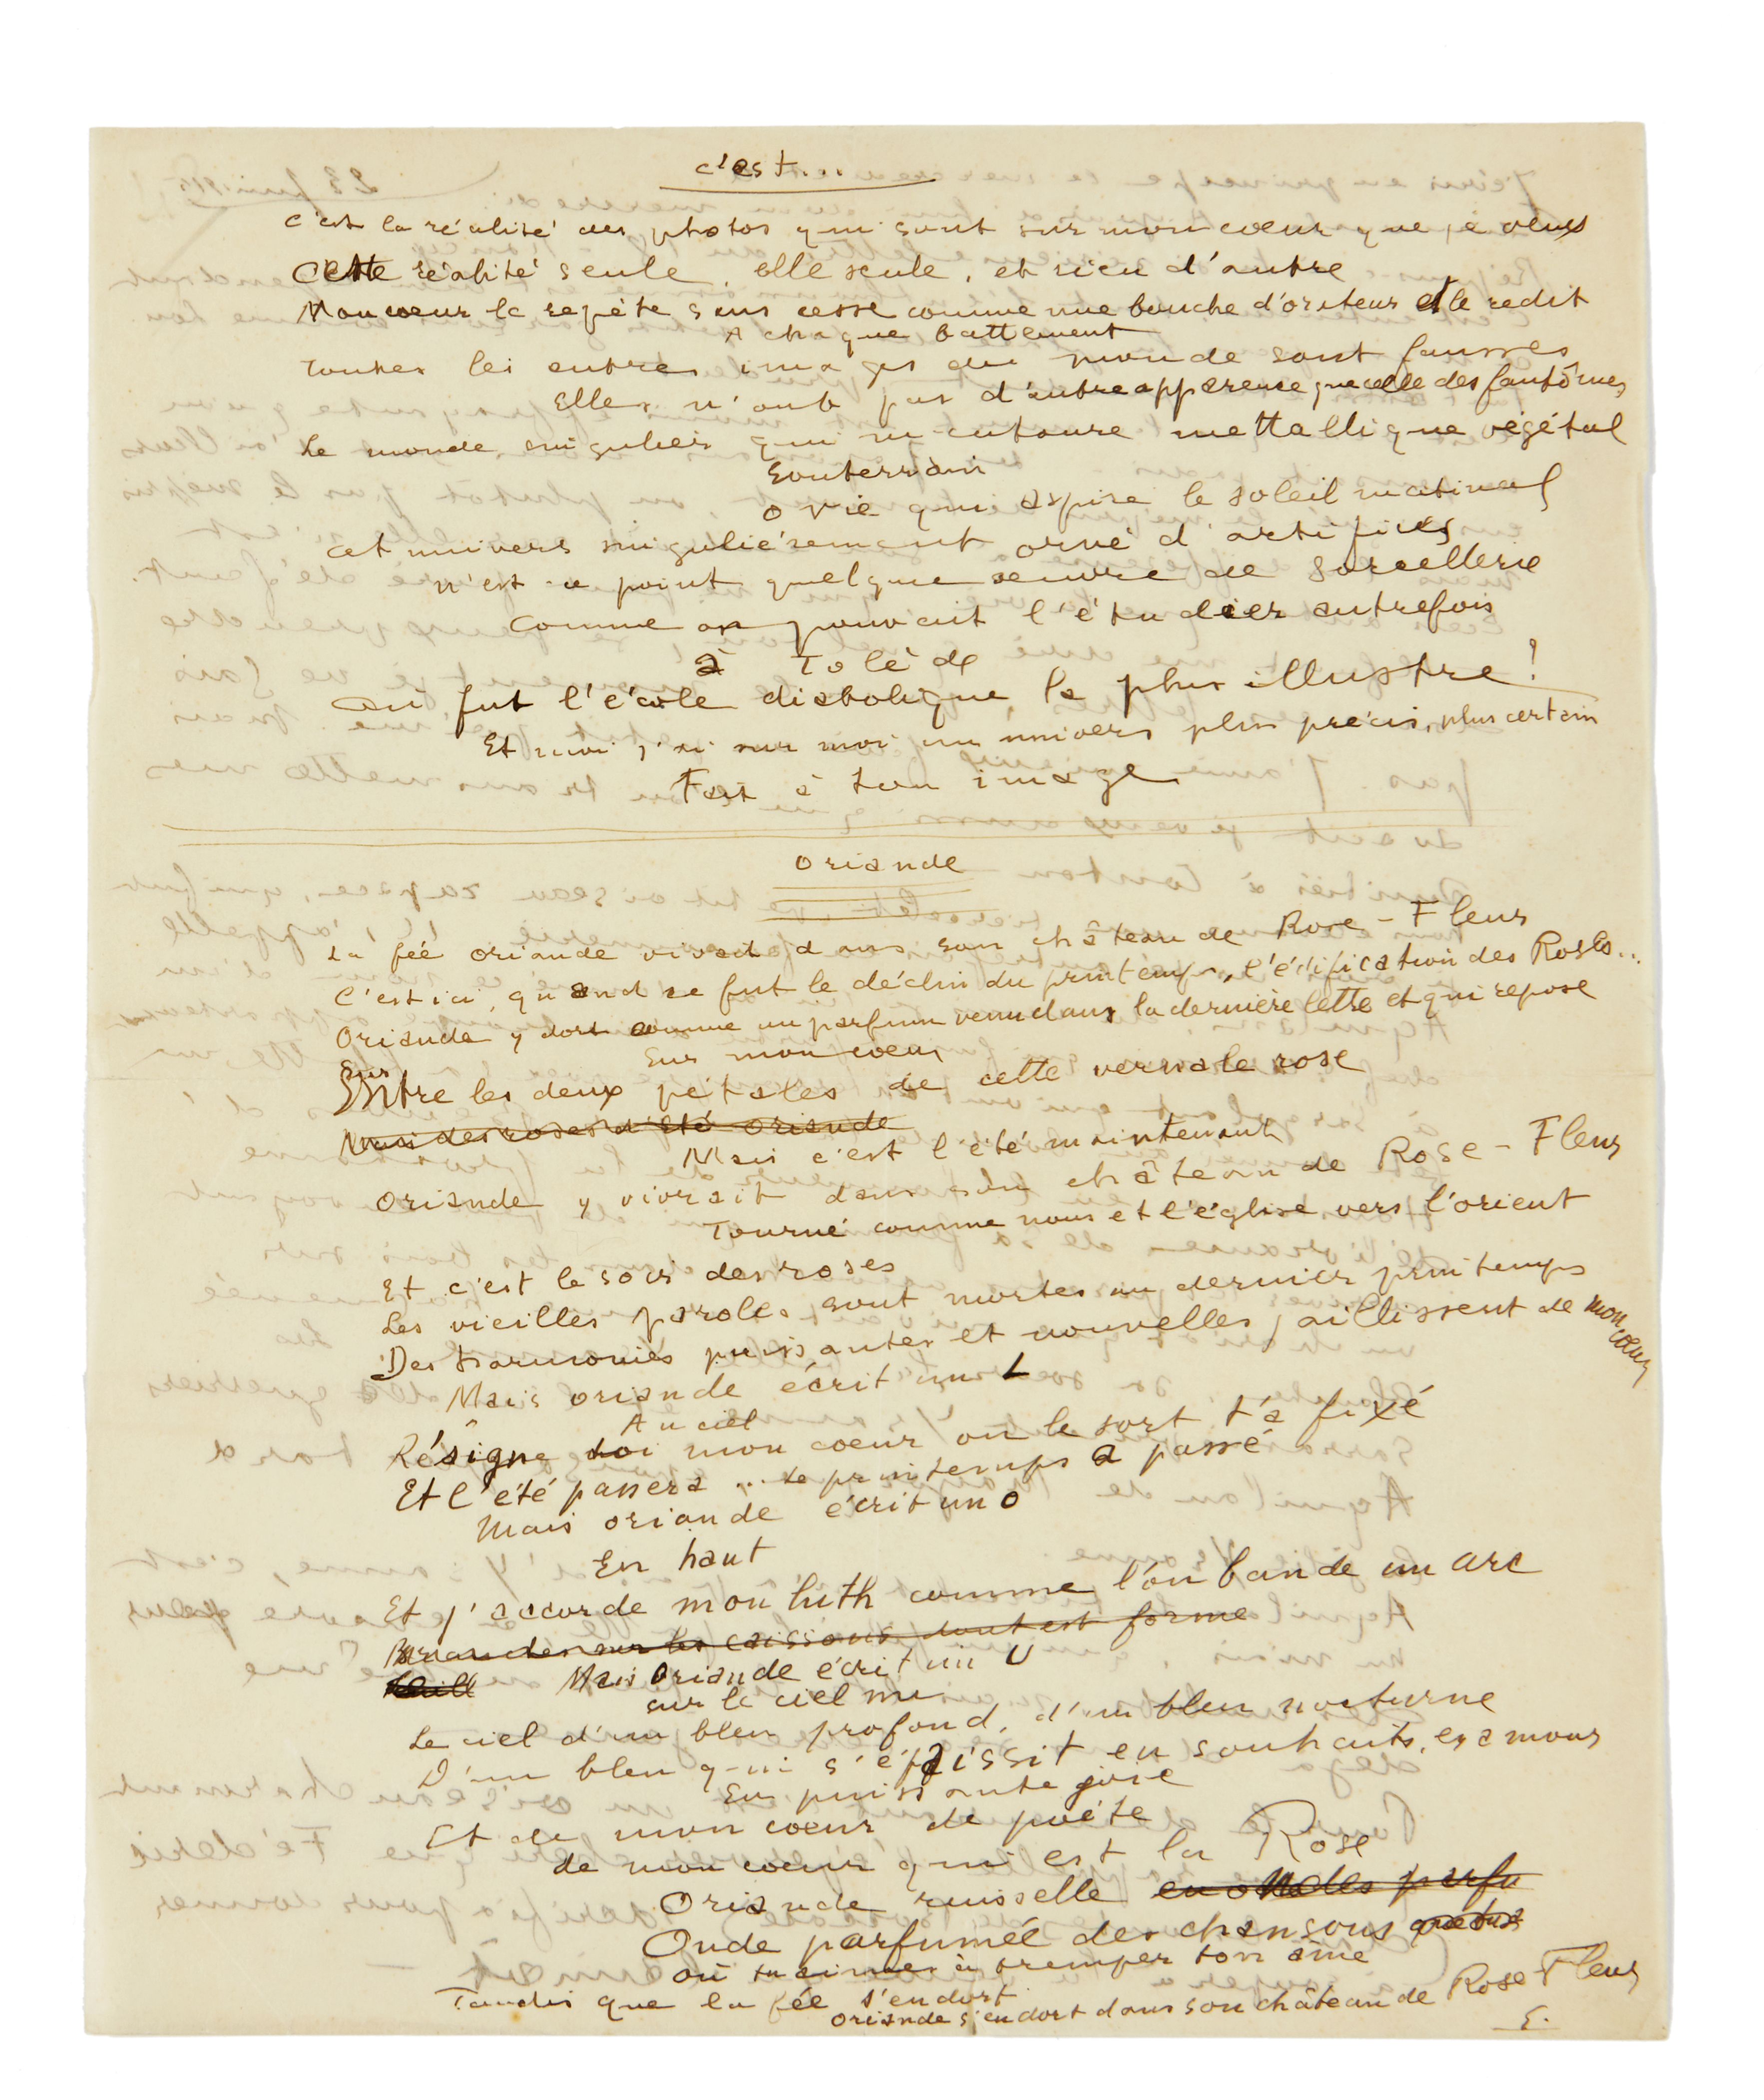 c'est...
c'est la réalité des photos qui sont sur mon cœur que je veux
Cette réalité seule, elle seule, et rien d'autre
Mon cœur la repète sans cesse comme une bouche d'orateur et le redit
A chaque battement
Toutes les autres images du monde sont fausses
Elles n'ont pas d'autre apparence que celle des fantômes
Le monde singulier qui m'entoure mettallique végétal
Souterrain
O vie qui aspire le soleil matinal
Cet univers singulièrement orné d'artifices
n'est ce point quelque œuvre de sorcellerie
Comme on pouvait l'étudier autrefois
à Tolède
Où fut l'école diabolique la plus illustre !
Et moi j'ai sur moi un univers plus précis, plus certain
Fait à ton image
Oriande
La fée Oriande vivait dans son château de Rose-Fleur
C'est ici, quand ce fut le déclin du printemps, l'édification des Roses...
Oriande y dort comme un parfum venu dans la dernière lettre et qui repose
Sur mon cœur
Sur
Entre les deux pétales de cette vernale rose
Mais des roses d'été Oriande
Mais c'est l'été maintenant
Oriande y vivrait dans son château de Rose-Fleur
Tourné comme nous et l'église vers l'orient
Et c'est le soir des roses
Les vieilles paroles sont mortes au dernier printemps
Des harmonies puissantes et nouvelles jaillissent de mon cœur
Mais Oriande écrit un L
Au ciel
Résigne toi mon cœur où le sort t'a fixé
Et l'été passera... Le printemps a passé
Mais Oriande écrit un O
En haut
Et j'accorde mon luth comme l'on bande un arc
sur les caissons dont est forme
Mais Oriande écrit un U
sur le ciel nu
Le ciel d'un bleu profond, d'un bleu nocturne
D'un bleu qui s'épaissit en souhaits, en amour
En puissante joie
Et de mon cœur de poète
de mon cœur qui est la Rose
Oriande ruisselle en ondes parfu
Onde parfumée des chansons
où tu aimes à tremper ton âme
Tandis que la fée s'endort
Oriande s'endort dans son château de Rose-Fleur